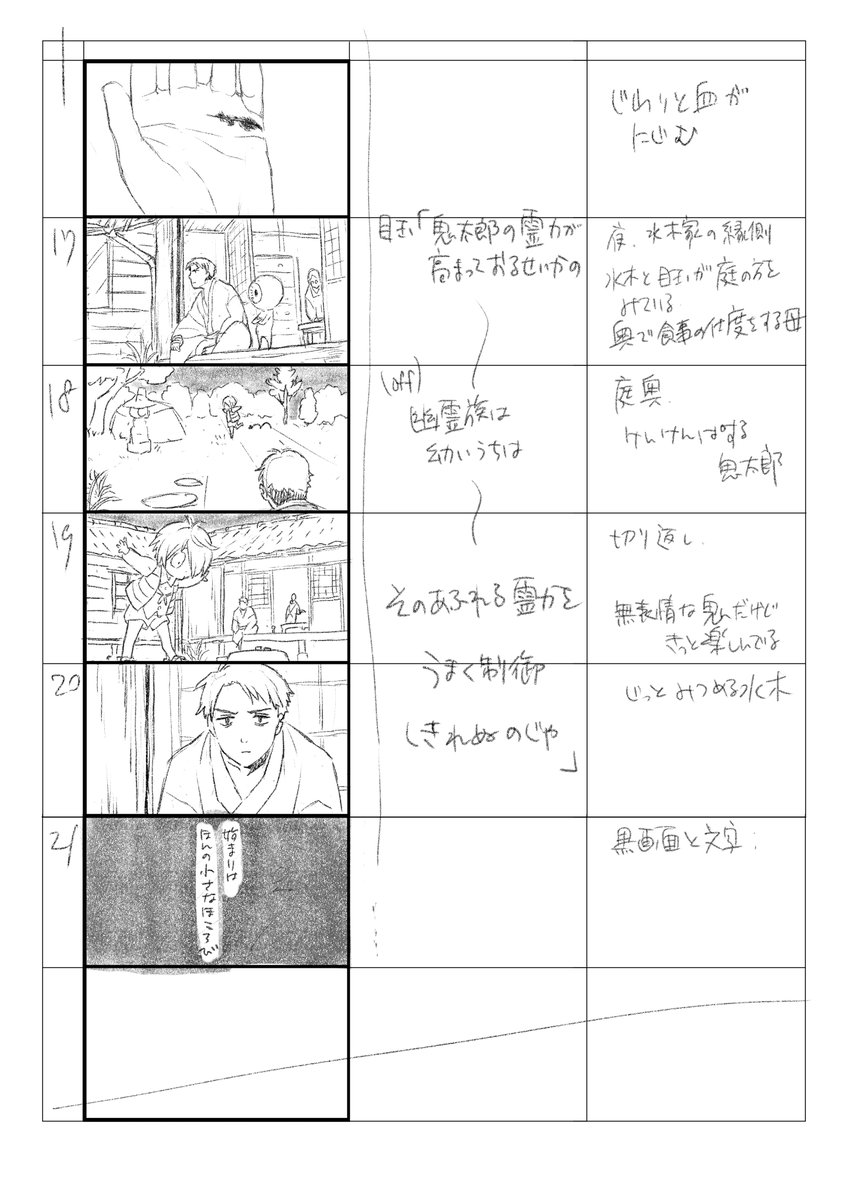 じわりと血が
にじむ
17
目玉「鬼太郎の霊力が
高まっておるせいかの
夜、水木家の縁側
水木と目玉が庭の方を
みている
奥で食事の仕度をする母
18
(off)
幽霊族は
幼いうちは
庭奥
けんけんぱする
鬼太郎
19
そのあふれる霊力を
切り返し
無表情な鬼んだけど
きっと楽しんでる
20
うまく制御
しきれぬのじゃ
」
じっとみつめる水木
21
始まりは
ほんの小さなほころび
黒画面と文字